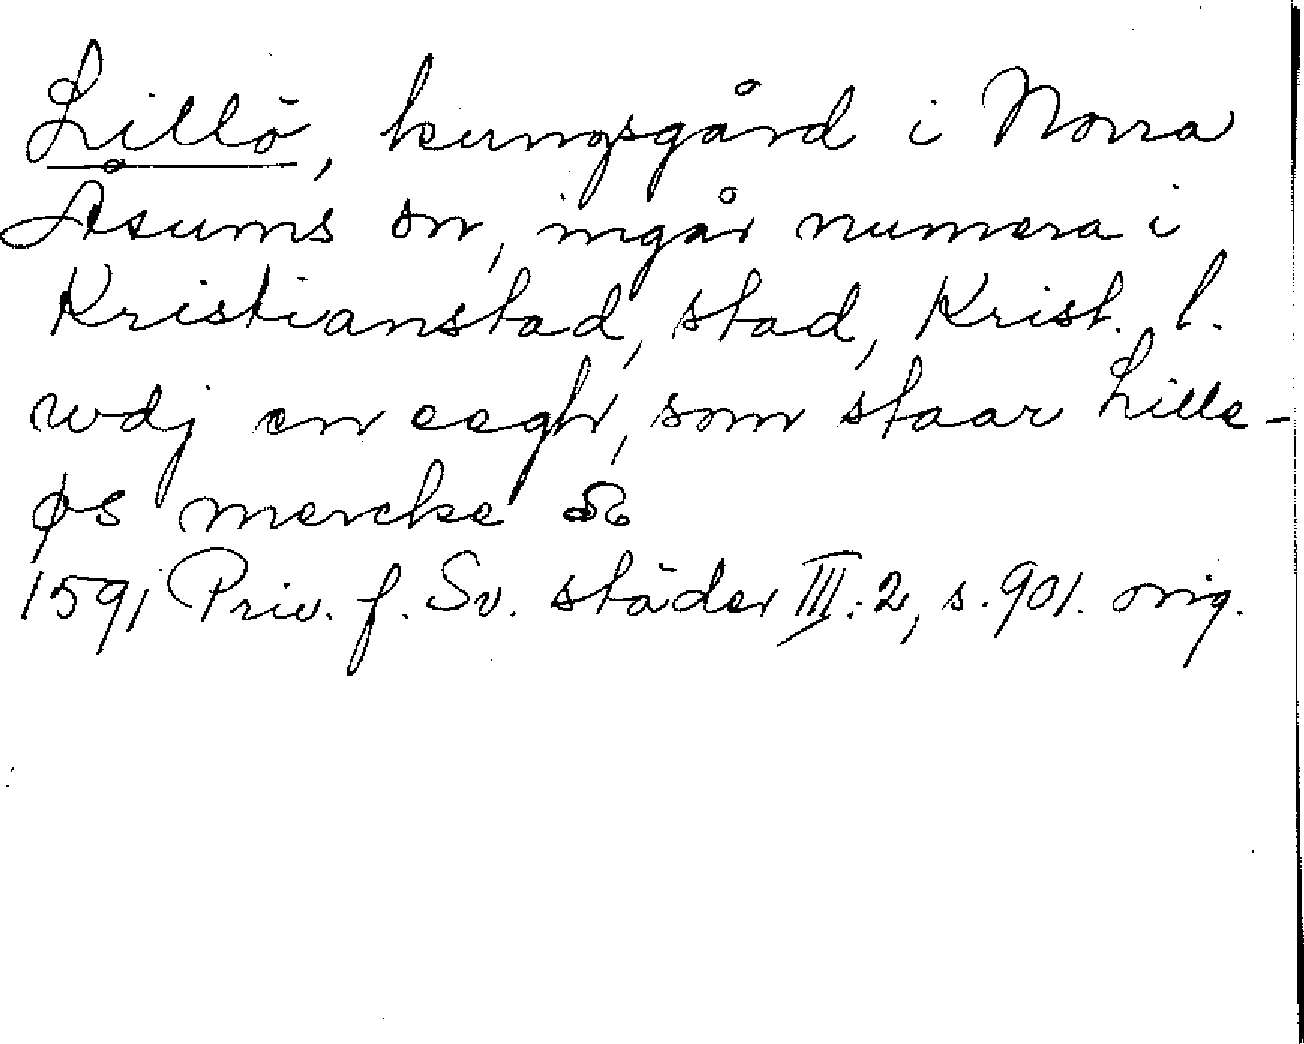 Lillö, kungsgård i Norra
Åsums sn, ingår numera i
Kristianstad, stad, Krist. l.
wdj en eegh, som staar Lille-
øs mercke
1591 Priv. f. Sv. städer III:2, s. 901. orig.